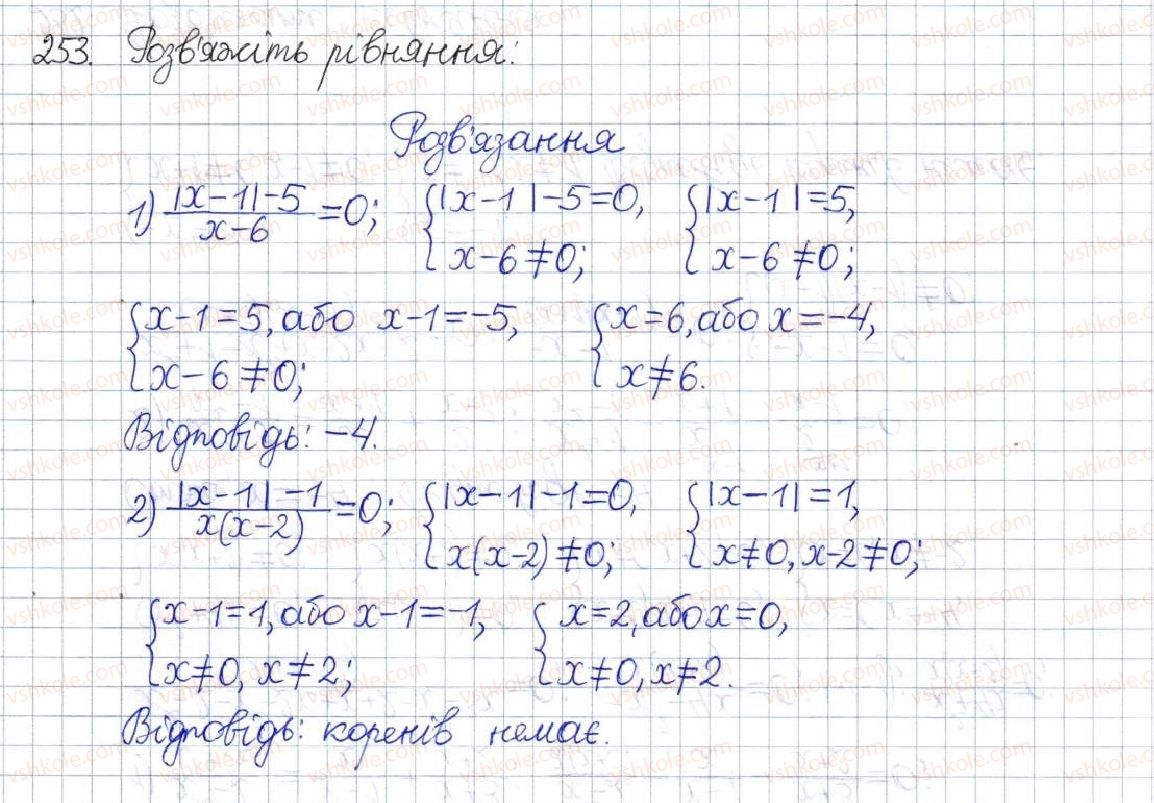 253. Розв'яжіть рівняння:
Розв'язання
1) |x-1|-5 / x-6 = 0; { |x-1|-5=0, x-6≠0; { |x-1|=5, x-6≠0;
{ x-1=5, або x-1=-5, x-6≠0; { x=6, або x=-4, x≠6.
Відповідь: -4.
2) |x-1|-1 / x(x-2) = 0; { |x-1|-1=0, x(x-2)≠0; { |x-1|=1, x≠0, x-2≠0;
{ x-1=1, або x-1=-1, x≠0, x≠2; { x=2, або x=0, x≠0, x≠2.
Відповідь: коренів немає.
vshkole.com